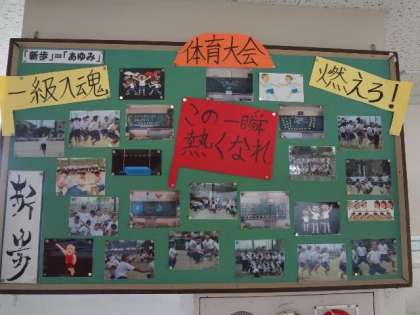 「新歩」=「あゆみ」
体育大会
一級入魂
燃えろ!
この一瞬
熱くなれ
新歩